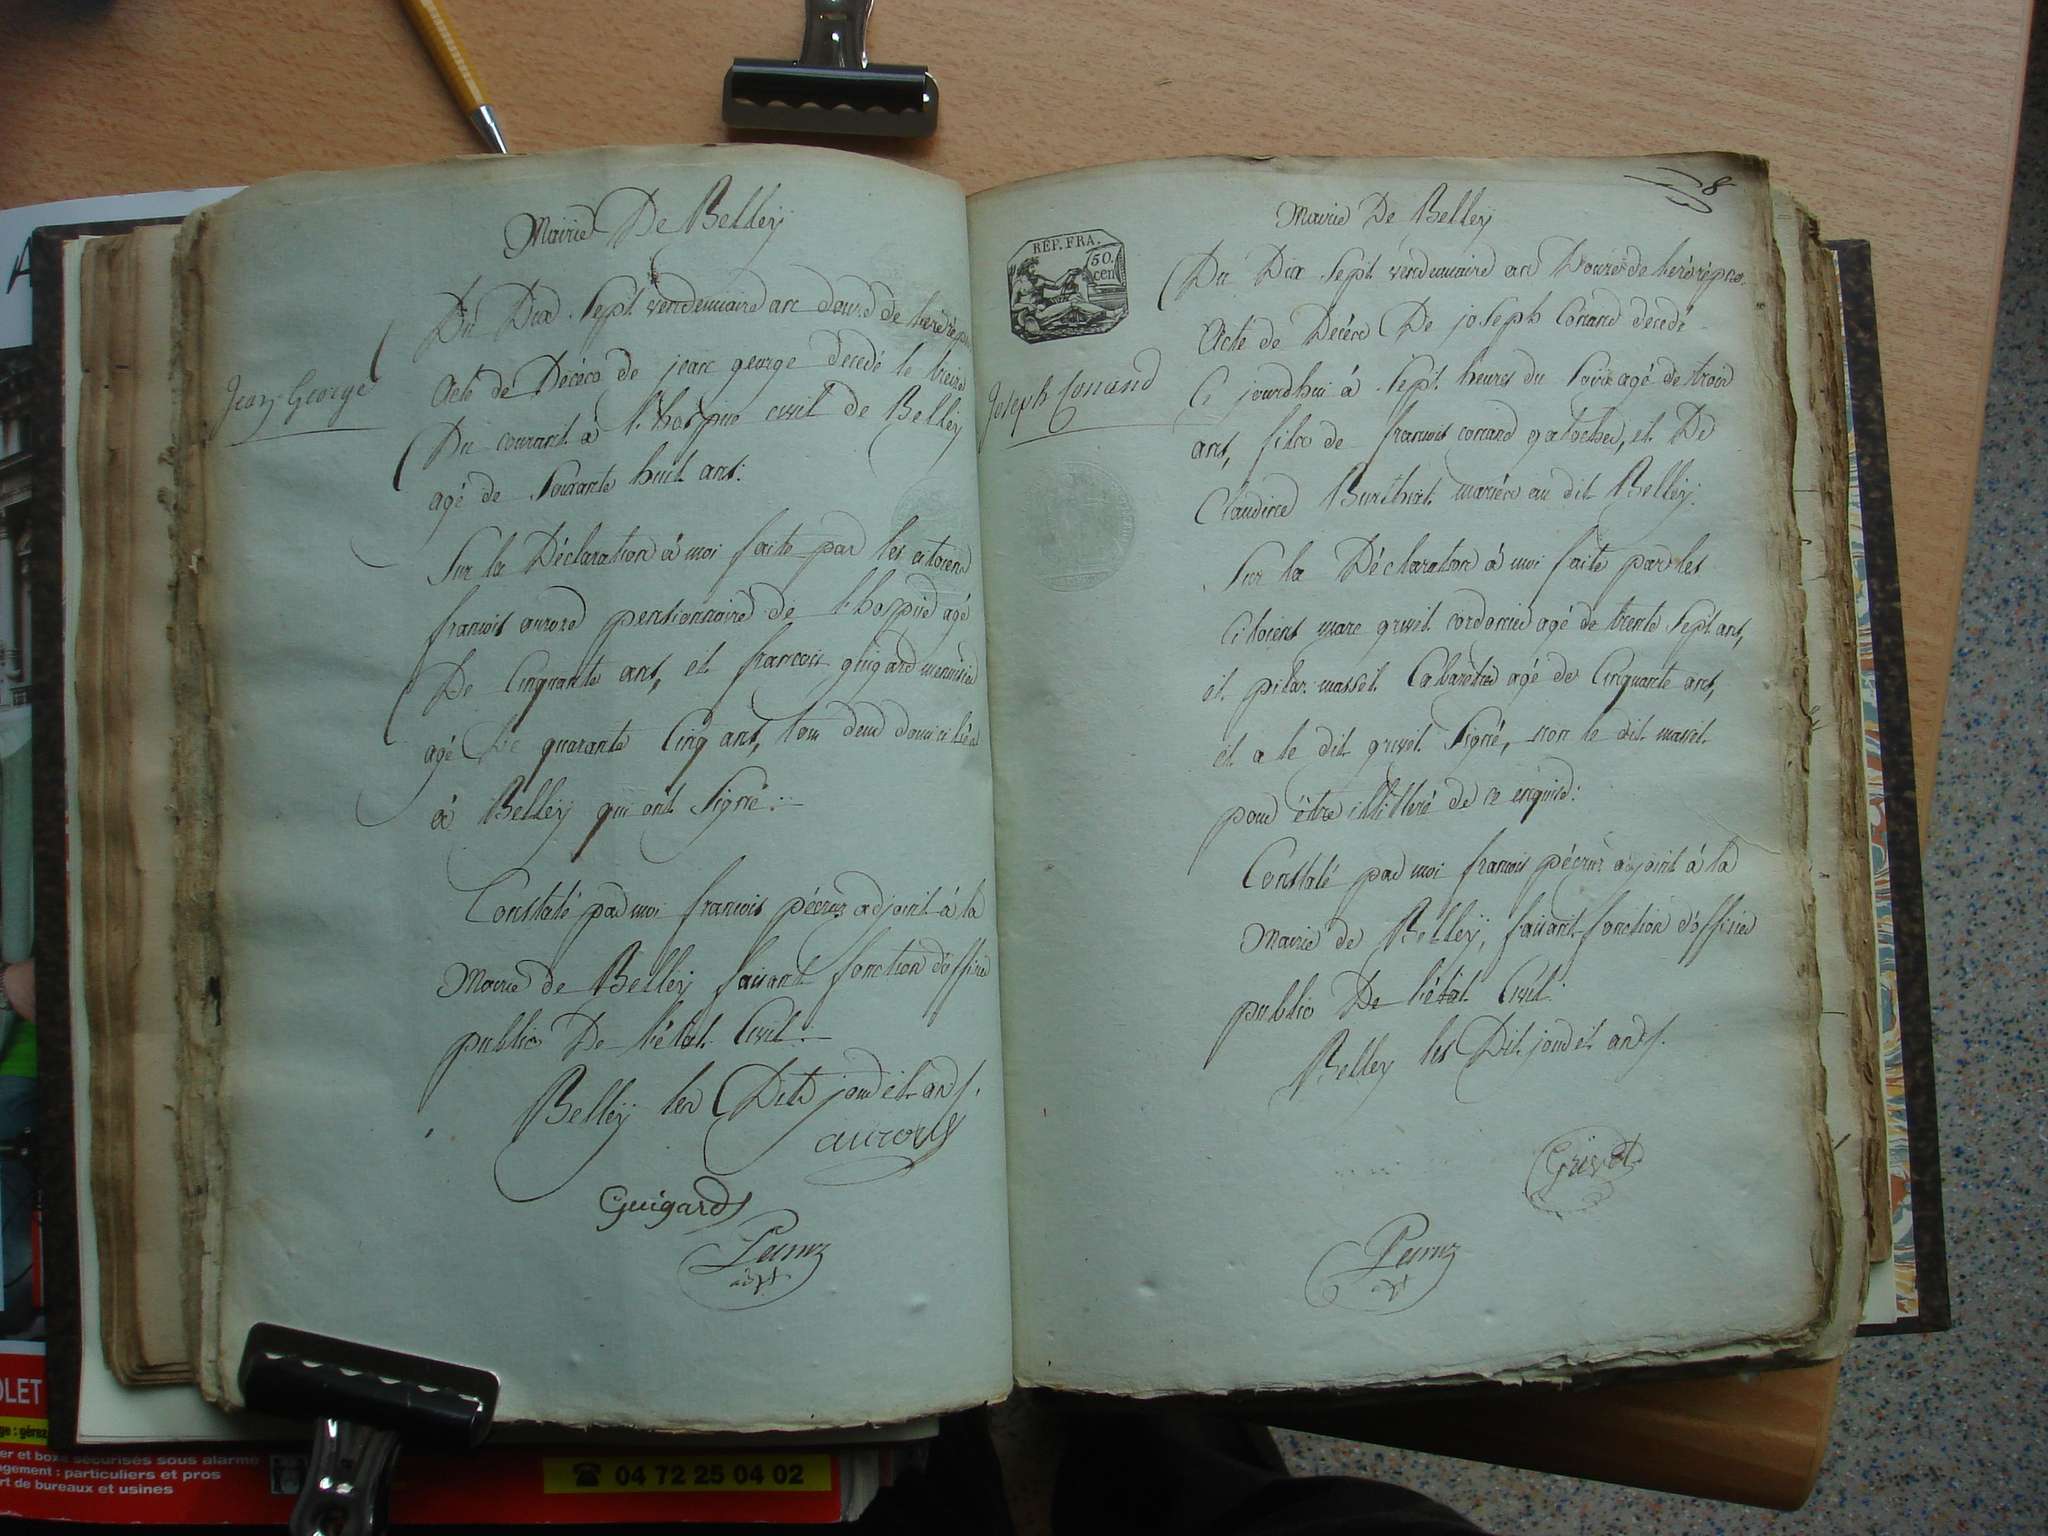 Mairie De Belley
Du Dix Sept vendemiaire an douze de l'ere repne
Jean George
Acte de Décéco de jean george decedé le treize
Du courant à l'hospice civil de Belley
agé de Soixante huit ans:
Sur la Déclaration à moi faite par les citoiens
francois aurord pensionnaire de l'hospice agé
De Cinquante ans, et francois guigard menuisier
agé De quarante Cinq ans, tous deux domiciliés
à Belley qui ont Signé:
Constaté par moi francois adjoint à la
Mairie de Belley faisant fonction d'officier
public De l'état Civil:
Belley les Dits jour et an
Guigard
adjt
8
Mairie De Belley
REP. FRA.
50.
cen
Du Dix Sept vendemiaire an Douze de l'ere repne
Joseph Conand
Acte de Décéco De joseph Conand decedé
Ce jourdhui à Sept heures du Soir agé de trois
ans, fils de francois conand et De
Claudine mariés au dit Belley:
Sur la Déclaration à moi faite par les
Citoiens marc grivet cordonnier agé de trente Sept ans,
et masset Cabaretier agé de Cinquante ans,
et a le dit grivet Signé, non le dit masset
pour être illitteré de ce enquis:
Constaté par moi francois adjoint à la
Mairie de Belley, faisant fonction d'officier
public De l'état Civil:
Belley les Dit jour et an
Grivet
adjt
OLET
er et box sécurisés sous alarme
agement : particuliers et pros
rt de bureaux et usines
04 72 25 04 02